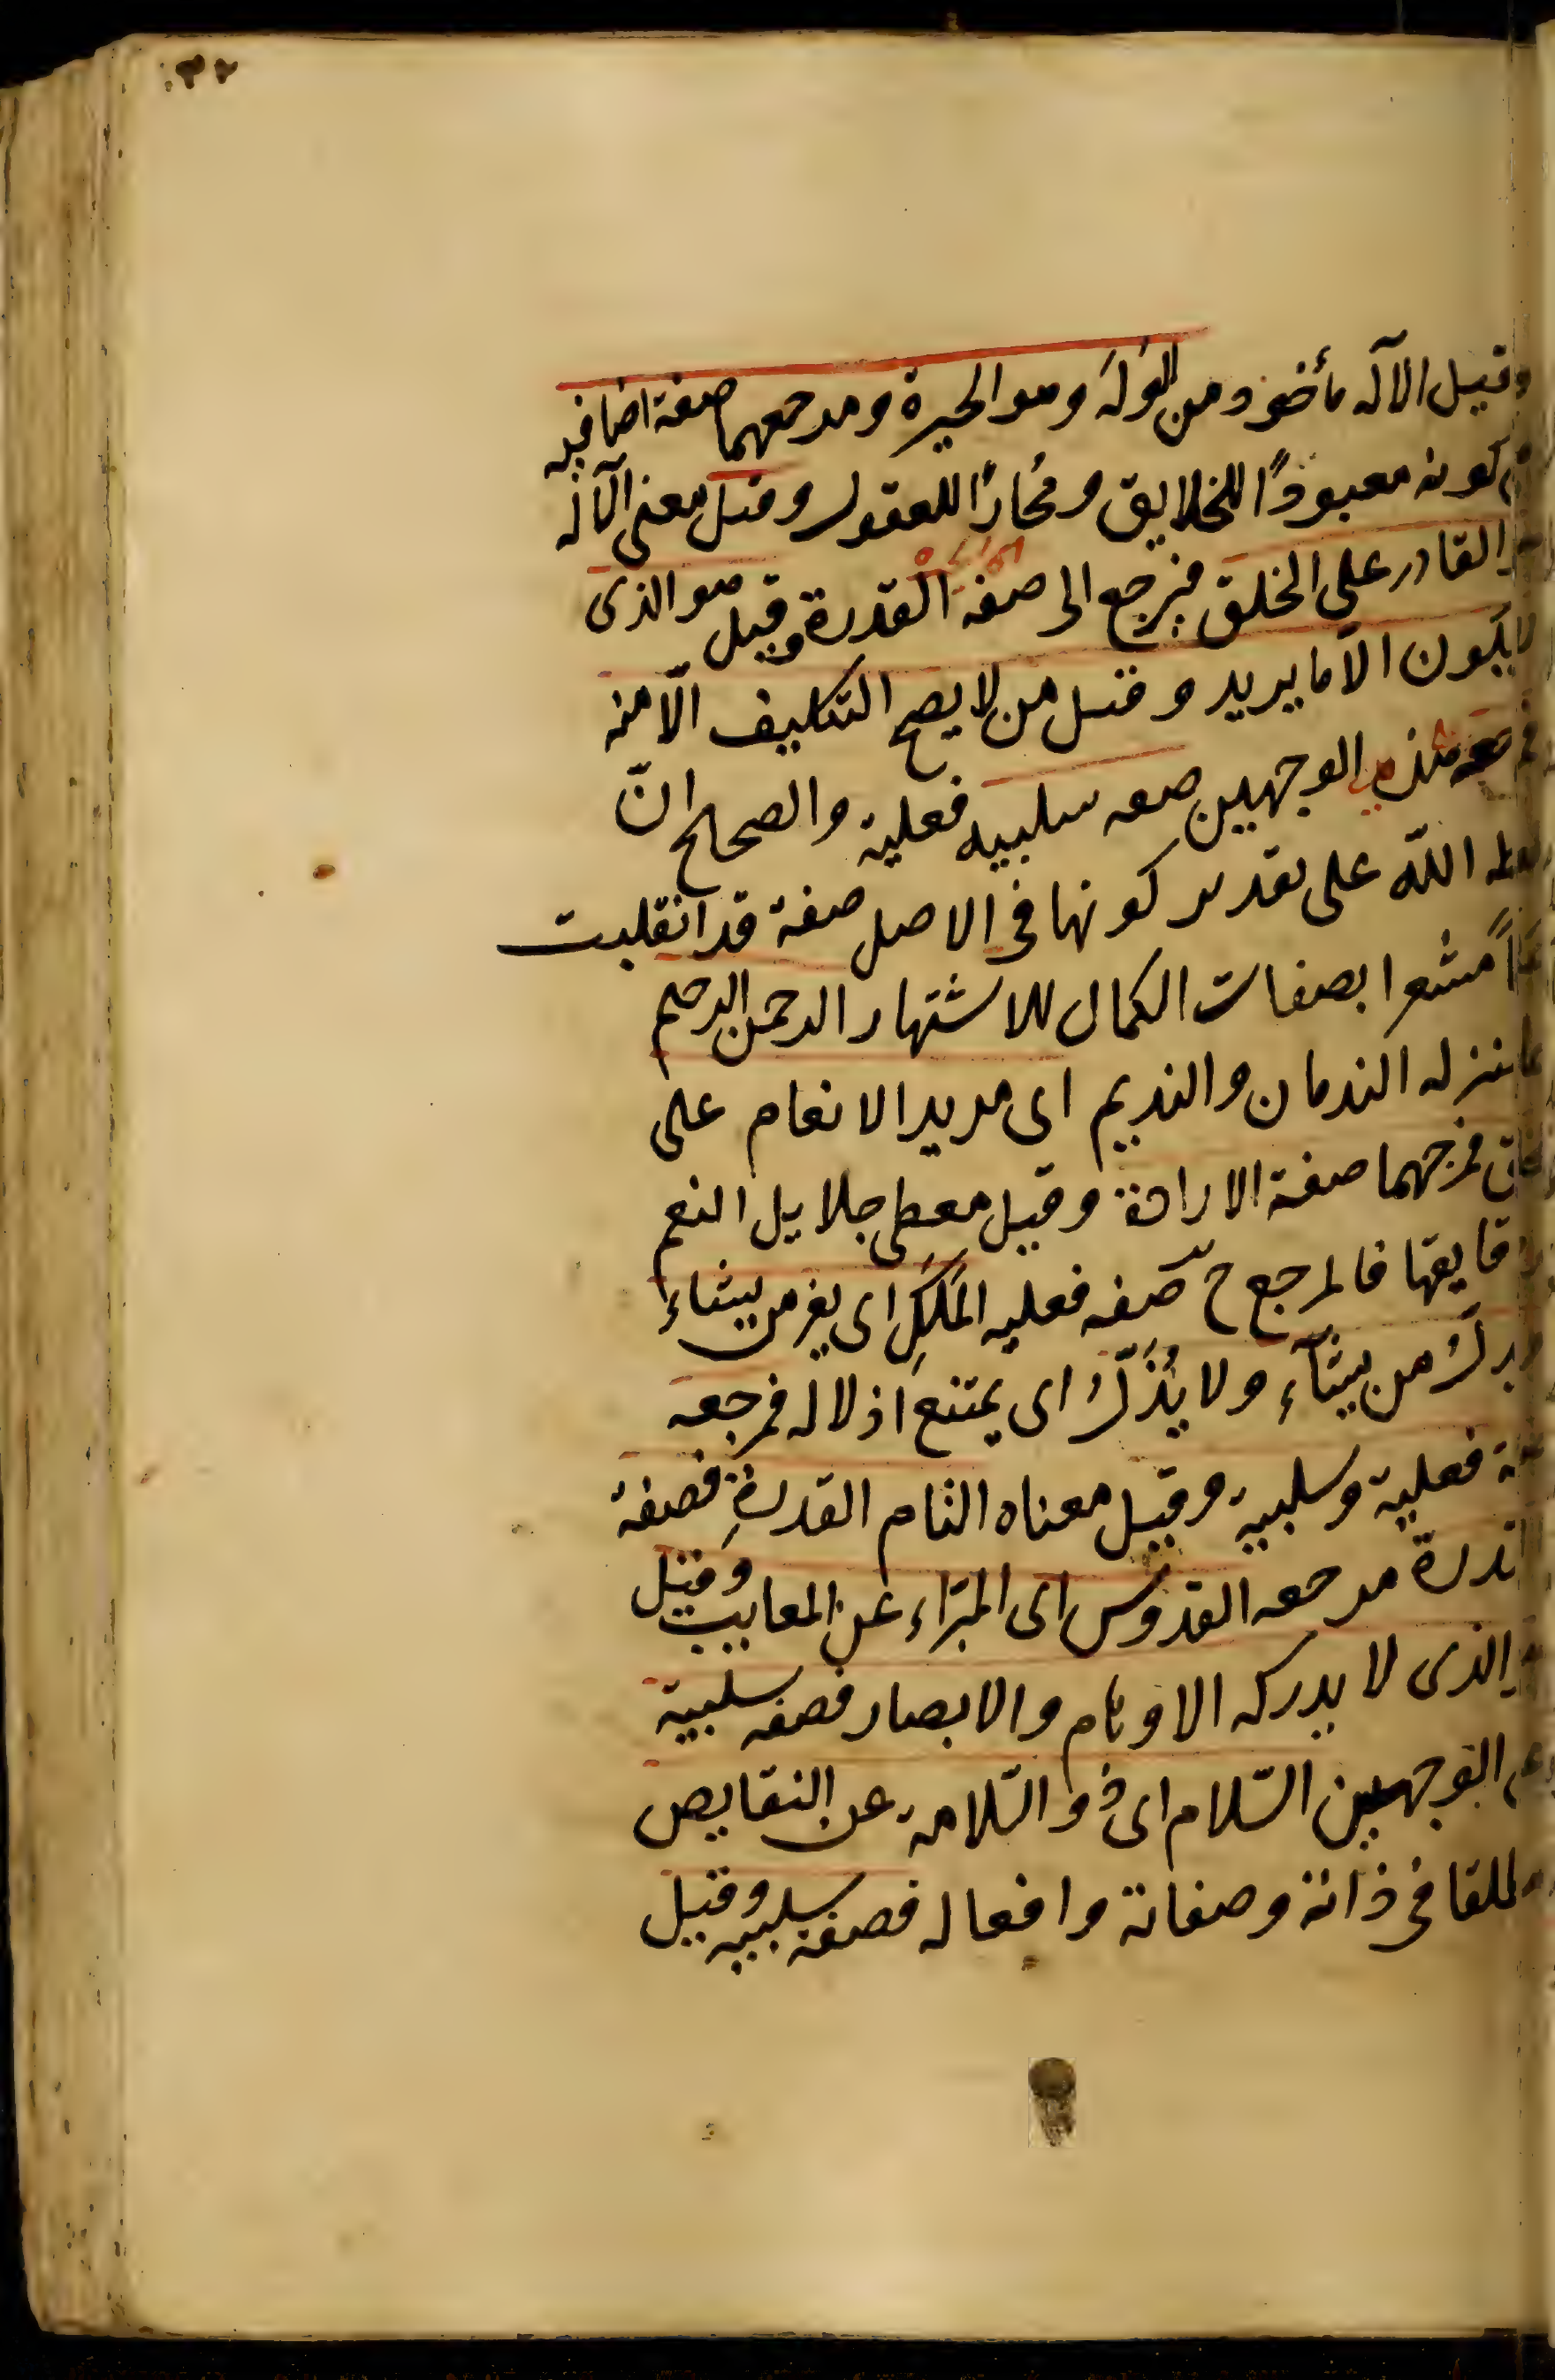 وقيل الاله مأخوذ من الوَلَه وهو الحيرة ومرجعهما صفة اضافيه
كونه معبودًا للخلايق ومُحارًا للعقول وقيل معنى الاله
القادر على الخلق فيرجع الى صفه القدرة وقيل هو الذى
لا يكون الّا ما يريد وقيل من لا يصح التكليف الّا منه
الوجهين صفه سلبيه فعلية والصحاح انّ
اللّه على تقدير كونها فى الاصل صفة قد انقلبت
مشعرا بصفات الكمال للاشتهار الرحمن الرحيم
بمنزله الندمان والنديم اى مريد الانعام على
فمرجهما صفة الارادة وقيل معطى جلايل النعم
قايقها فالمرجع ح صفه فعليه المَلِكِ اى يعز من يشاء
من يشآء ولا يُذَلُّ اى يمتنع اذلاله فمرجعه
فعلية وسلبية وقيل معناه التام القدرةِ فصفة
مرجعه القدوس اى المبرّاء عن المعايب وقيل
الذى لا يدركه الاوهام والابصار فصفه سلبية
الوجهين السّلام اى ذو السّلامة عن النقايص
فى ذاته وصفاته وافعاله فصفة سلبيه وقيل